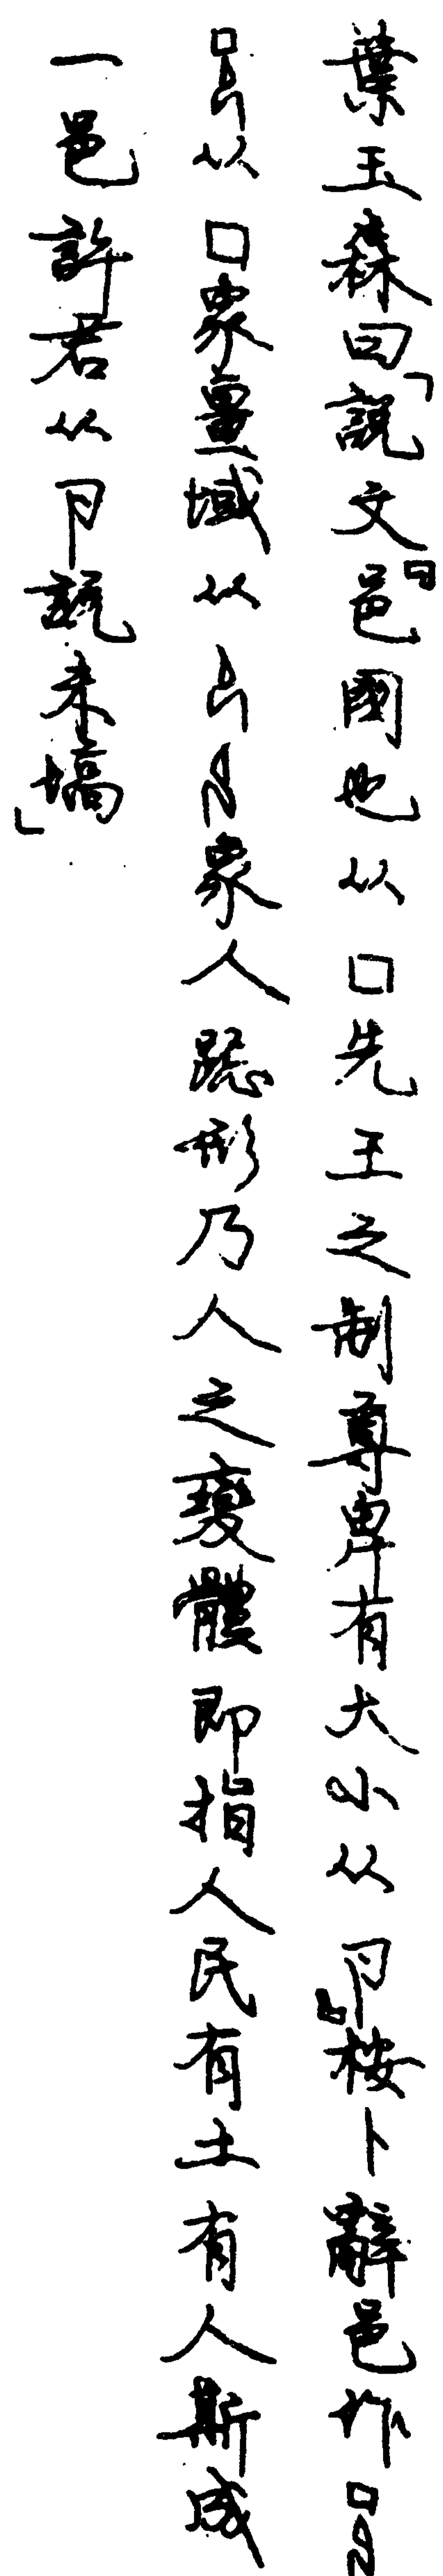 葉玉森曰「說文『邑國也从囗先王之制尊卑有大小从卪』桉卜辭邑作
从囗象畺域从象人跽形乃人之變體即指人民有土有人斯成
一邑許君从卪說未塙」